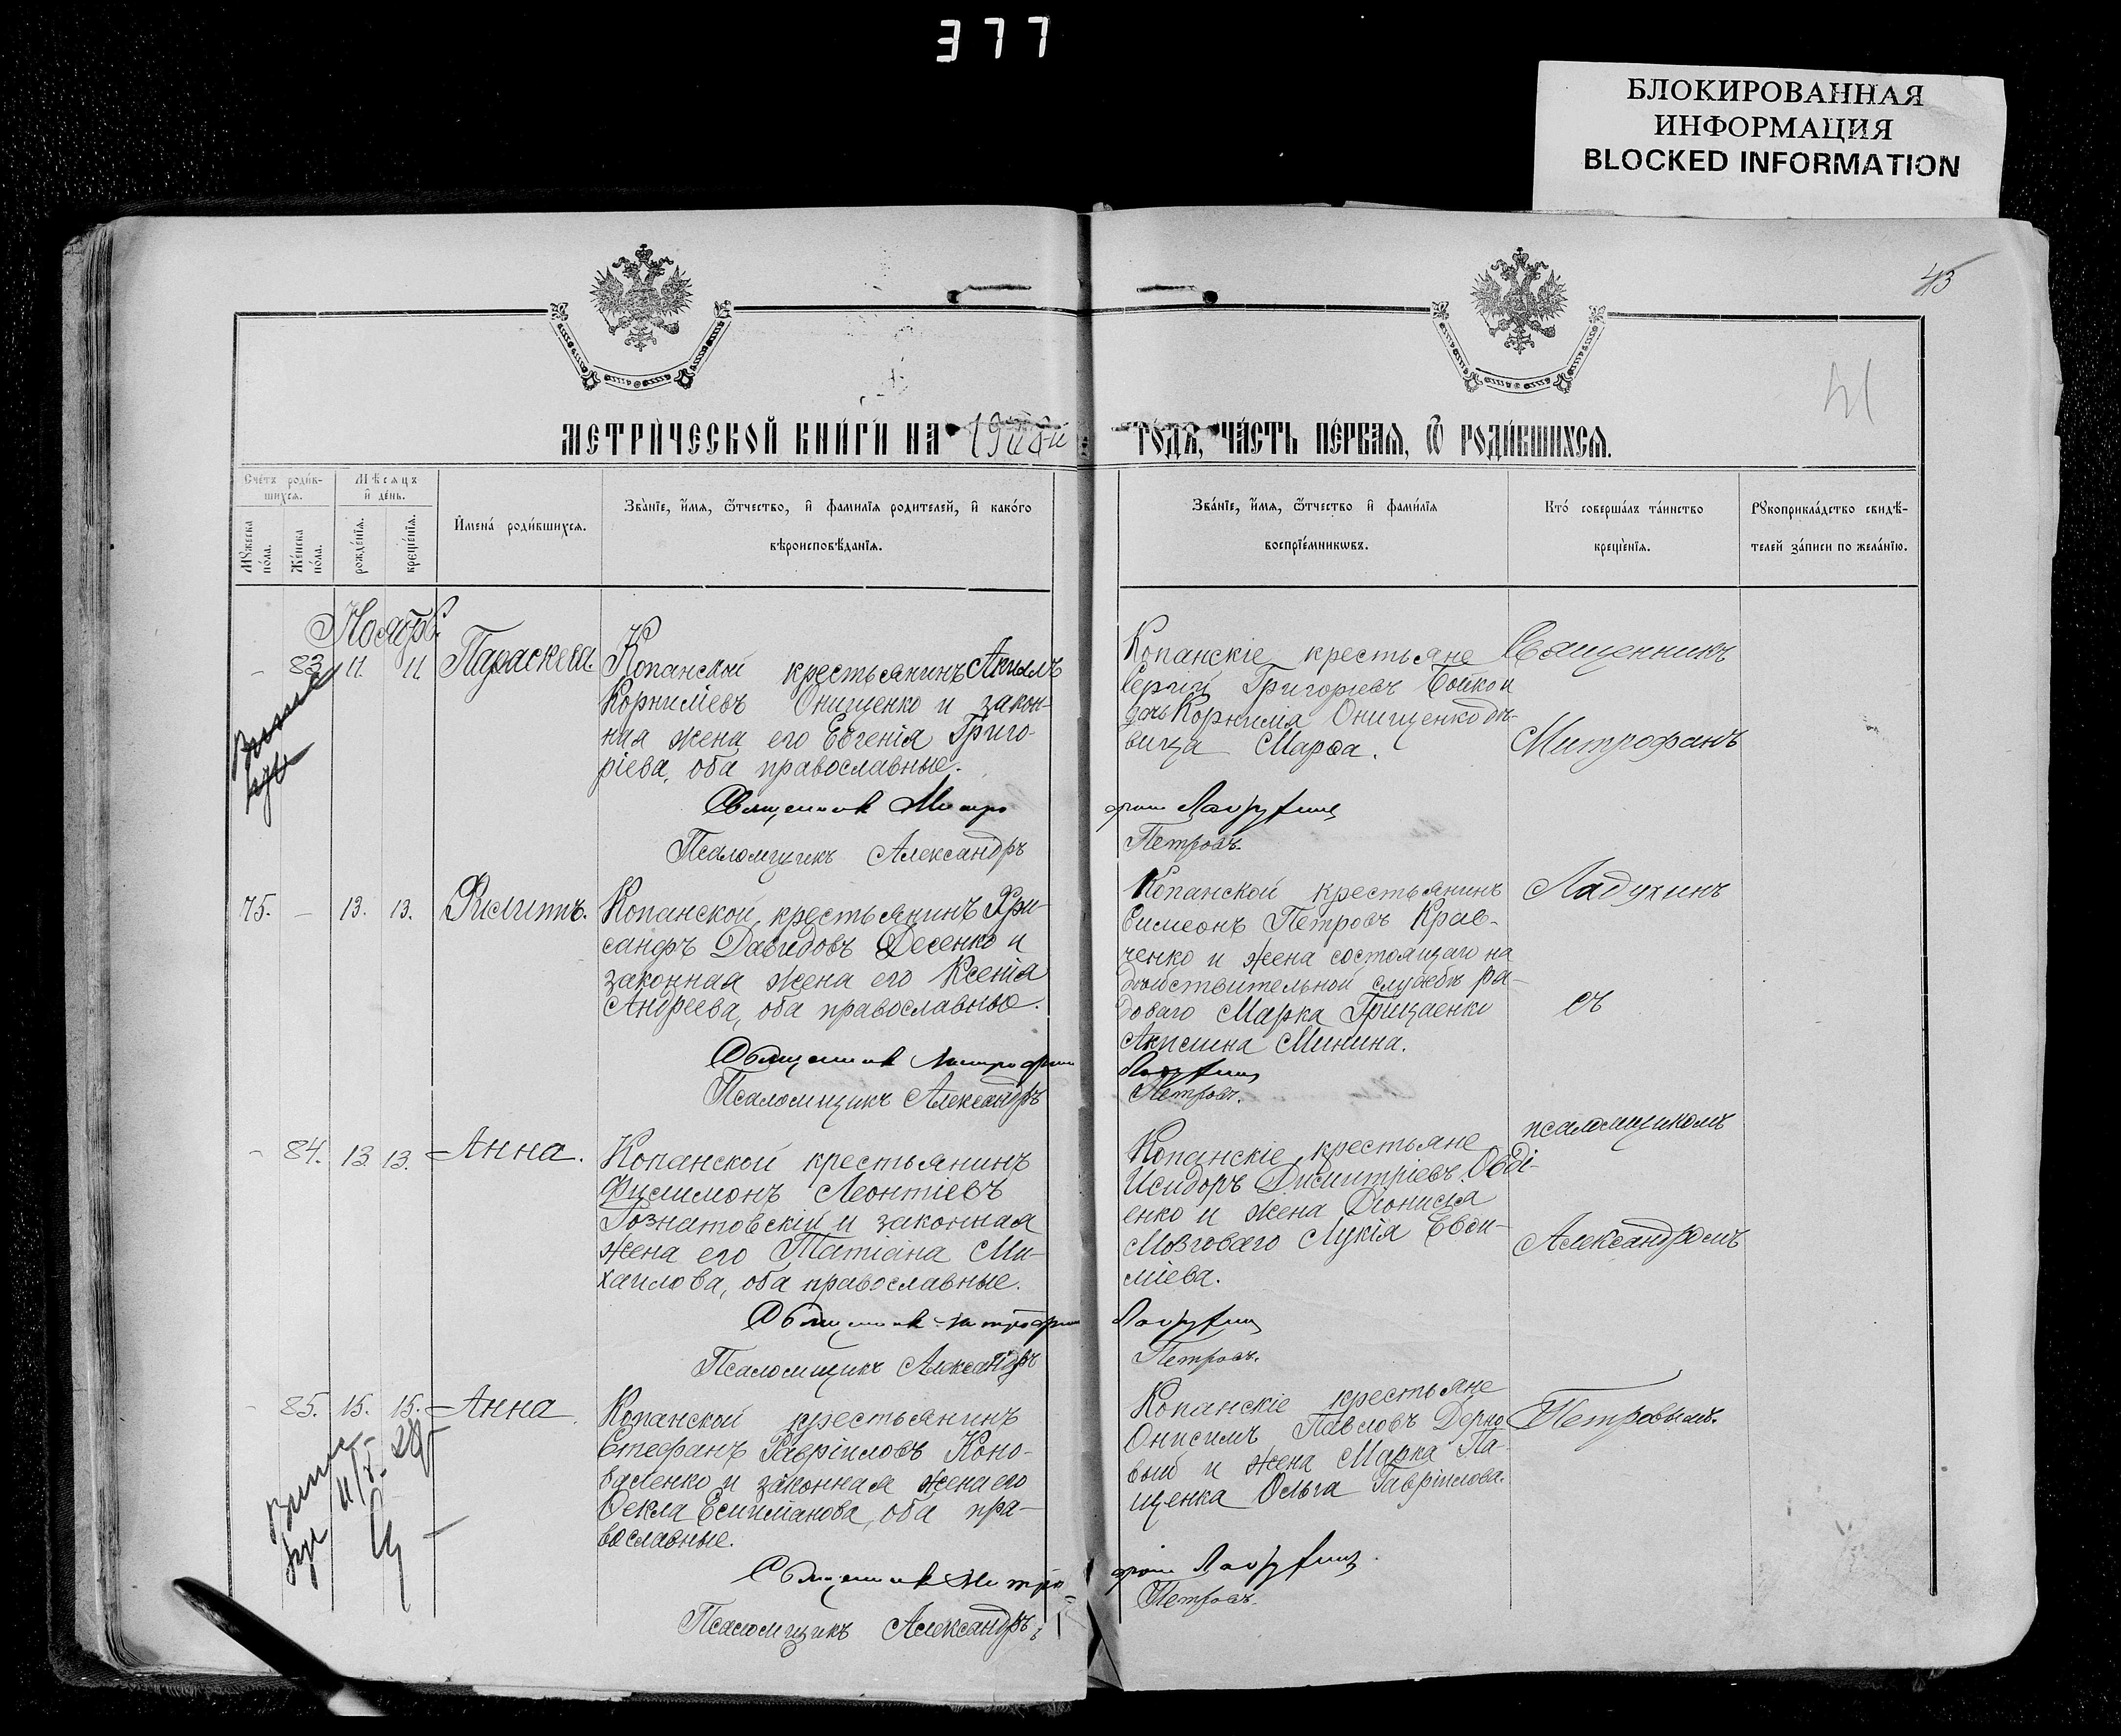 377
БЛОКИРОВАННАЯ
ИНФОРМАЦИЯ
BLOCKED INFORMATION
43
41
МЕТРИ́ЧЕСКОЙ КНИ́ГИ НА
ГО́ДЪ, ЧА́СТЬ ПЕ́РВАЯ, Ѿ РОДИ́ВШИХСѦ.
Сче́тъ роди́в-
шихсѧ.
Мꙋжеска по́ла.
Же́нска по́ла.
Мѣ́сѧцъ
и҆ де́нь.
рожде́нїѧ.
креще́нїѧ.
И҆мена̀ роди́вшихсѧ.
Зва́нїе, и҆́мѧ, ѻ҆́тчество, и҆ фами́лїѧ роди́телей, и҆ како́гѡ
вѣроисповѣ́данїѧ.
Зва́нїе, и҆́мѧ, ѻ҆́тчество и҆ фами́лїѧ
воспрїе́мникѡвъ.
Кто̀ соверша́лъ та́инство
креще́нїѧ.
Рꙋкоприкла́дство свидѣ́-
телей за́писи по жела́нїю.
Ноябрь.
- 83 11 11 Параскева.
Копанской крестьянинъ Акимъ
Корниліевъ Онищенко и закон-
ная жена его Евгенія Григо-
ріева, оба православные.
Священник Митро
Псаломщикъ Александръ
Копанскіе крестьяне
Сергій Григорьевъ Бойко и
дочь Корнилія Онищенко дѣ-
вица Марѳа.
фан Ладухин
Петровъ.
Священникъ
Митрофанъ
75. - 13. 13. Филиппъ.
Копанской крестьянинъ Хри-
санфъ Давидовъ Десенко и
законная жена его Ксенія
Андреева, оба православные.
Священник Митрофан
Псаломщикъ Александръ
Копанской крестьянинъ
Симеонъ Петровъ Крав-
ченко и жена состоящаго на
дѣйствительной службѣ ря-
доваго Марка Грицаенко
Акилина Минина.
Ладухин
Петровъ.
Ладухинъ
съ
- 84. 13 13. Анна.
Копанской крестьянинъ
Филимонъ Леонтіевъ
Гознатовскій и законная
жена его Татіана Ми-
хаилова, оба православные.
Священник Митрофан
Псаломщикъ Александръ
Копанскіе крестьяне
Исидоръ Димитріевъ Овді-
енко и жена Діонисія
Мозговаго Лукія Евѳи-
міева.
Ладухин
Петровъ.
псаломщикомъ
Александромъ
- 85. 15. 15. Анна
Копанской крестьянинъ
Стефанъ Гавріиловъ Коно-
валенко и законная жена его
Ѳекла, оба пра-
вославные.
Священник Митро
Псаломщикъ Александръ
Копанскіе крестьяне
Онисимъ Павловъ Дерно
вый и жена Марка Па-
щенка Ольга Гавріилова.
фан Ладухин
Петровъ.
Петровымъ.